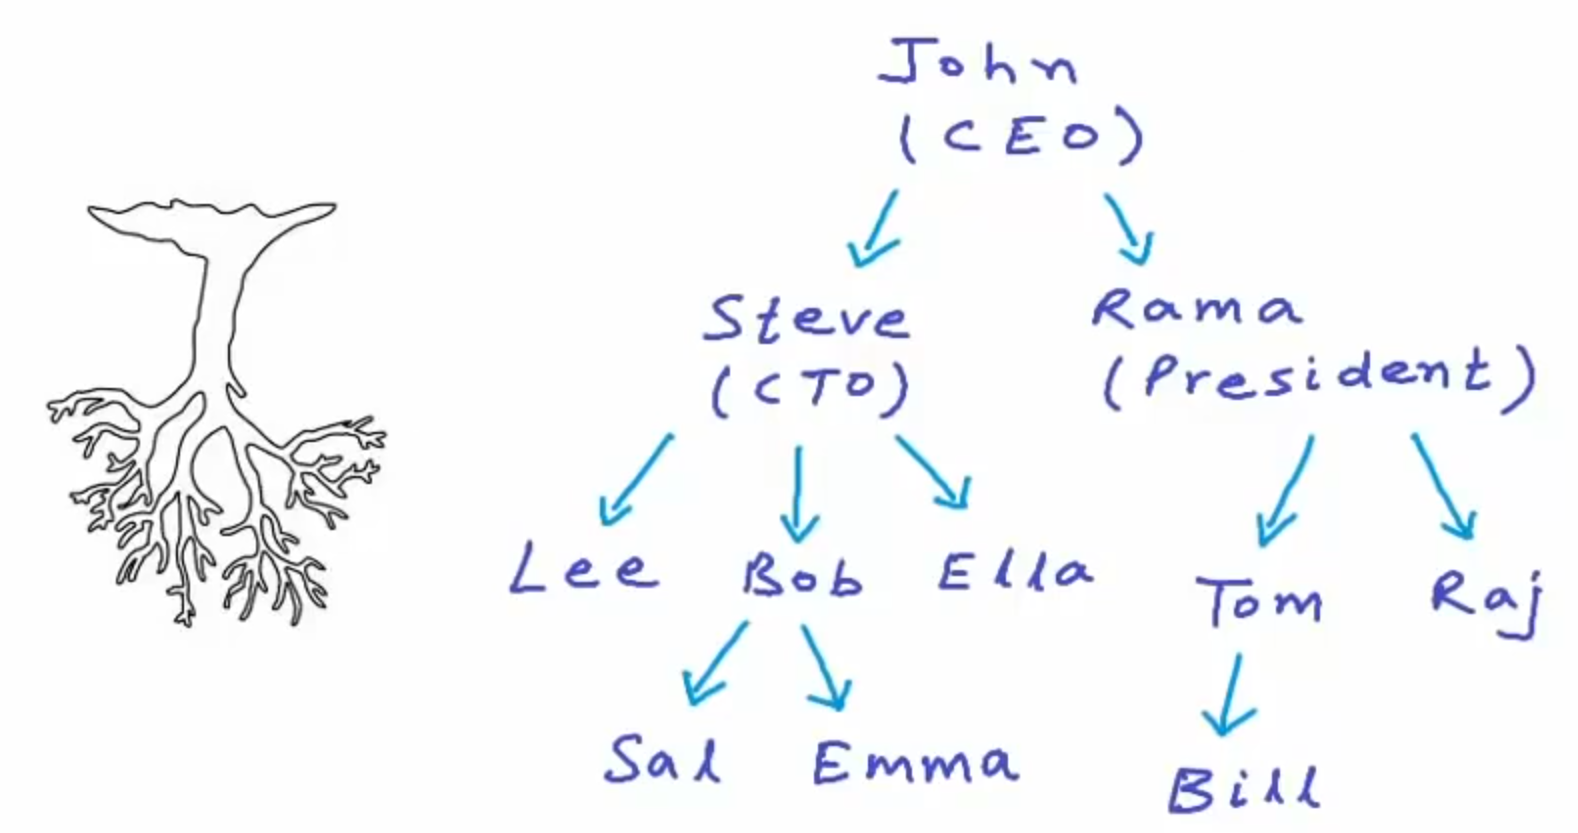 John
(CEO)
Steve
(CTO)
Rama
(President)
Lee Bob Ella
Tom Raj
Sal Emma
Bill